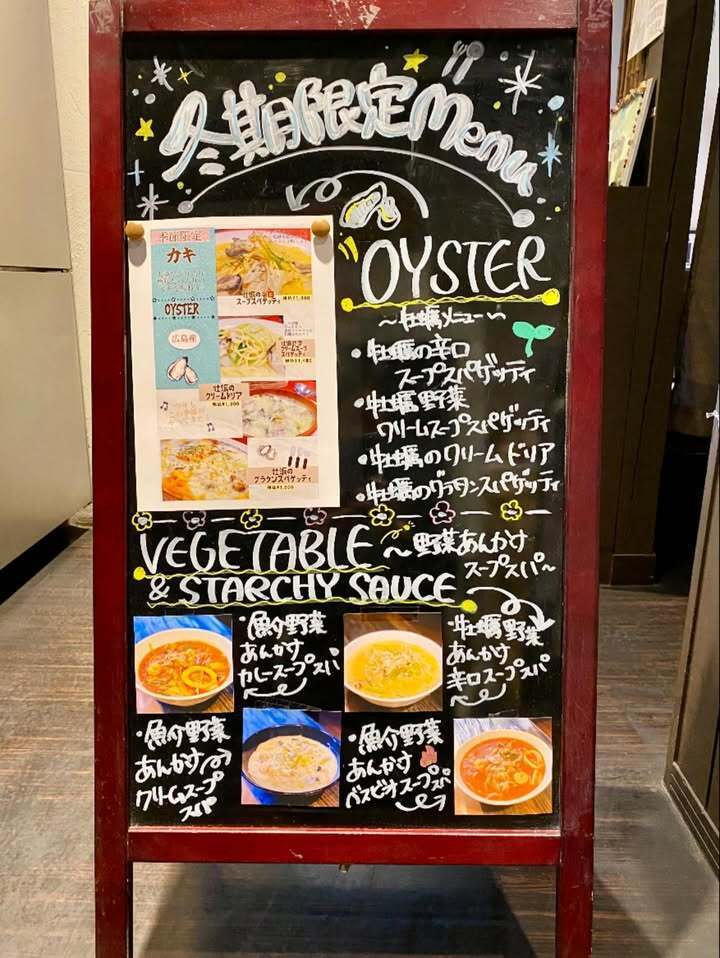 冬期限定Menu
季節限定
カキ
OYSTER
広島産
牡蠣の辛口
スープスパゲッティ
クリームスープ
スパゲッティ
牡蠣の
クリームドリア
牡蠣の
グラタンスパゲッティ
OYSTER
〜牡蠣メニュー〜
・牡蠣の辛口
スープスパゲッティ
・牡蠣野菜
クリームスープスパゲッティ
・牡蠣のクリームドリア
・牡蠣のグラタンスパゲッティ
VEGETABLE
& STARCHY SAUCE
〜野菜あんかけ
スープスパ〜
・魚介野菜
あんかけ
カレースープスパ
・牡蠣野菜
あんかけ
辛口スープスパ
・魚介野菜
あんかけ
クリームスープ
スパ
・魚介野菜
あんかけ
ベスビオスープスパ